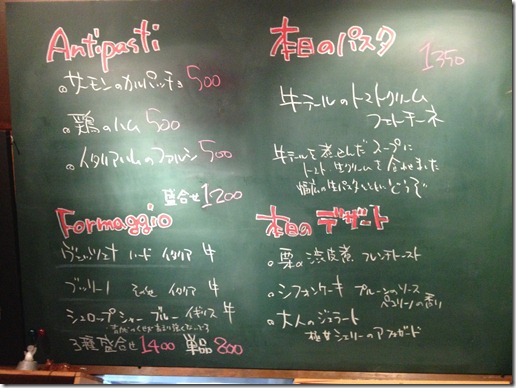 Antipasti
サーモンのカルパッチョ 500
鶏のハム 500
イタリアハムの 500
盛合せ 1200
Formaggio
ハード イタリア 牛
イタリア 牛
シュロップシャーブルー イギリス 牛
3種盛合せ 1400 単品 800
本日のパスタ
1350
牛テールのトマトクリーム
フェトチーネ
牛テールを煮込んだスープに
トマト 生クリームを合わせました
幅広の生パスタといっしょにどうぞ
本日のデザート
栗の渋皮煮 フレンチトースト
シフォンケーキ プルーンのソース
の香り
大人のジェラート
極甘シェリーのアフォガード